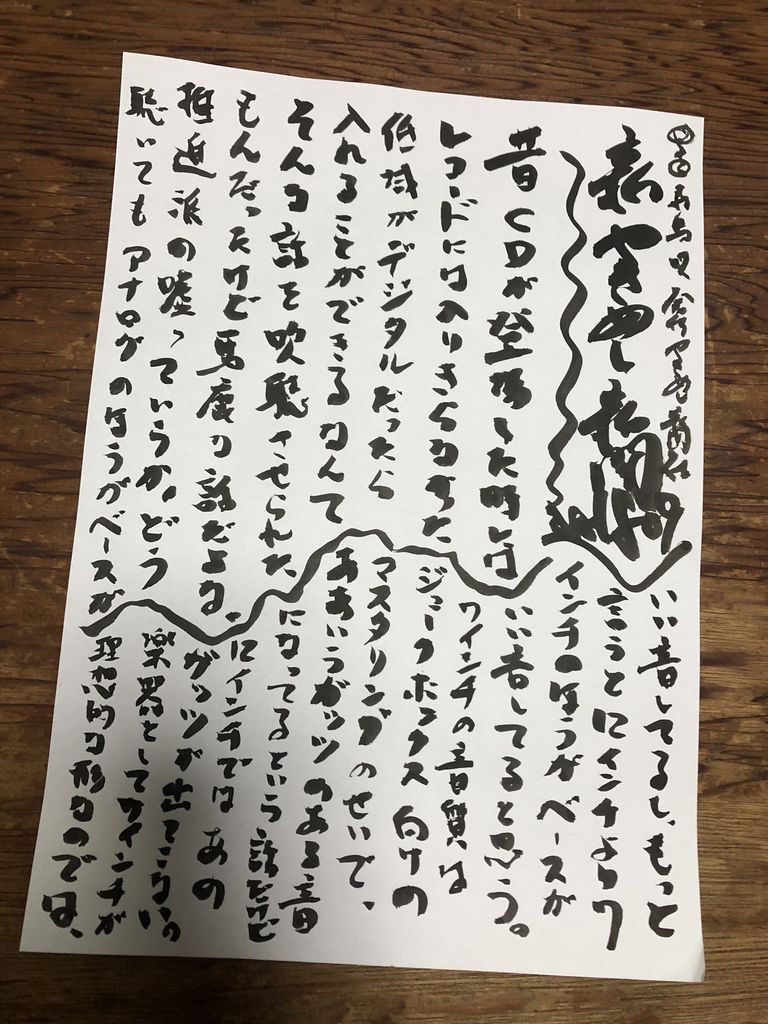 新 やきめし新聞
昔CDが登場した時は
レコードには入りきらなかった
低域がデジタルだったら
入れることができるなんて
そんな話を吹聴させられた
もんだったけど馬鹿な話だよな。
推進派の嘘っていうか、どう
聴いてもアナログのほうがベースが
いい音してるし、もっと
言うと12インチより7
インチのほうがベースが
いい音してると思う。
7インチの音質は
ジュークボックス向けの
マスタリングのせいで、
ああいうガッツのある音
になってるという話だけど
12インチでは あの
ガッツが出てこない。
楽器として7インチが
理想的な形なのでは、